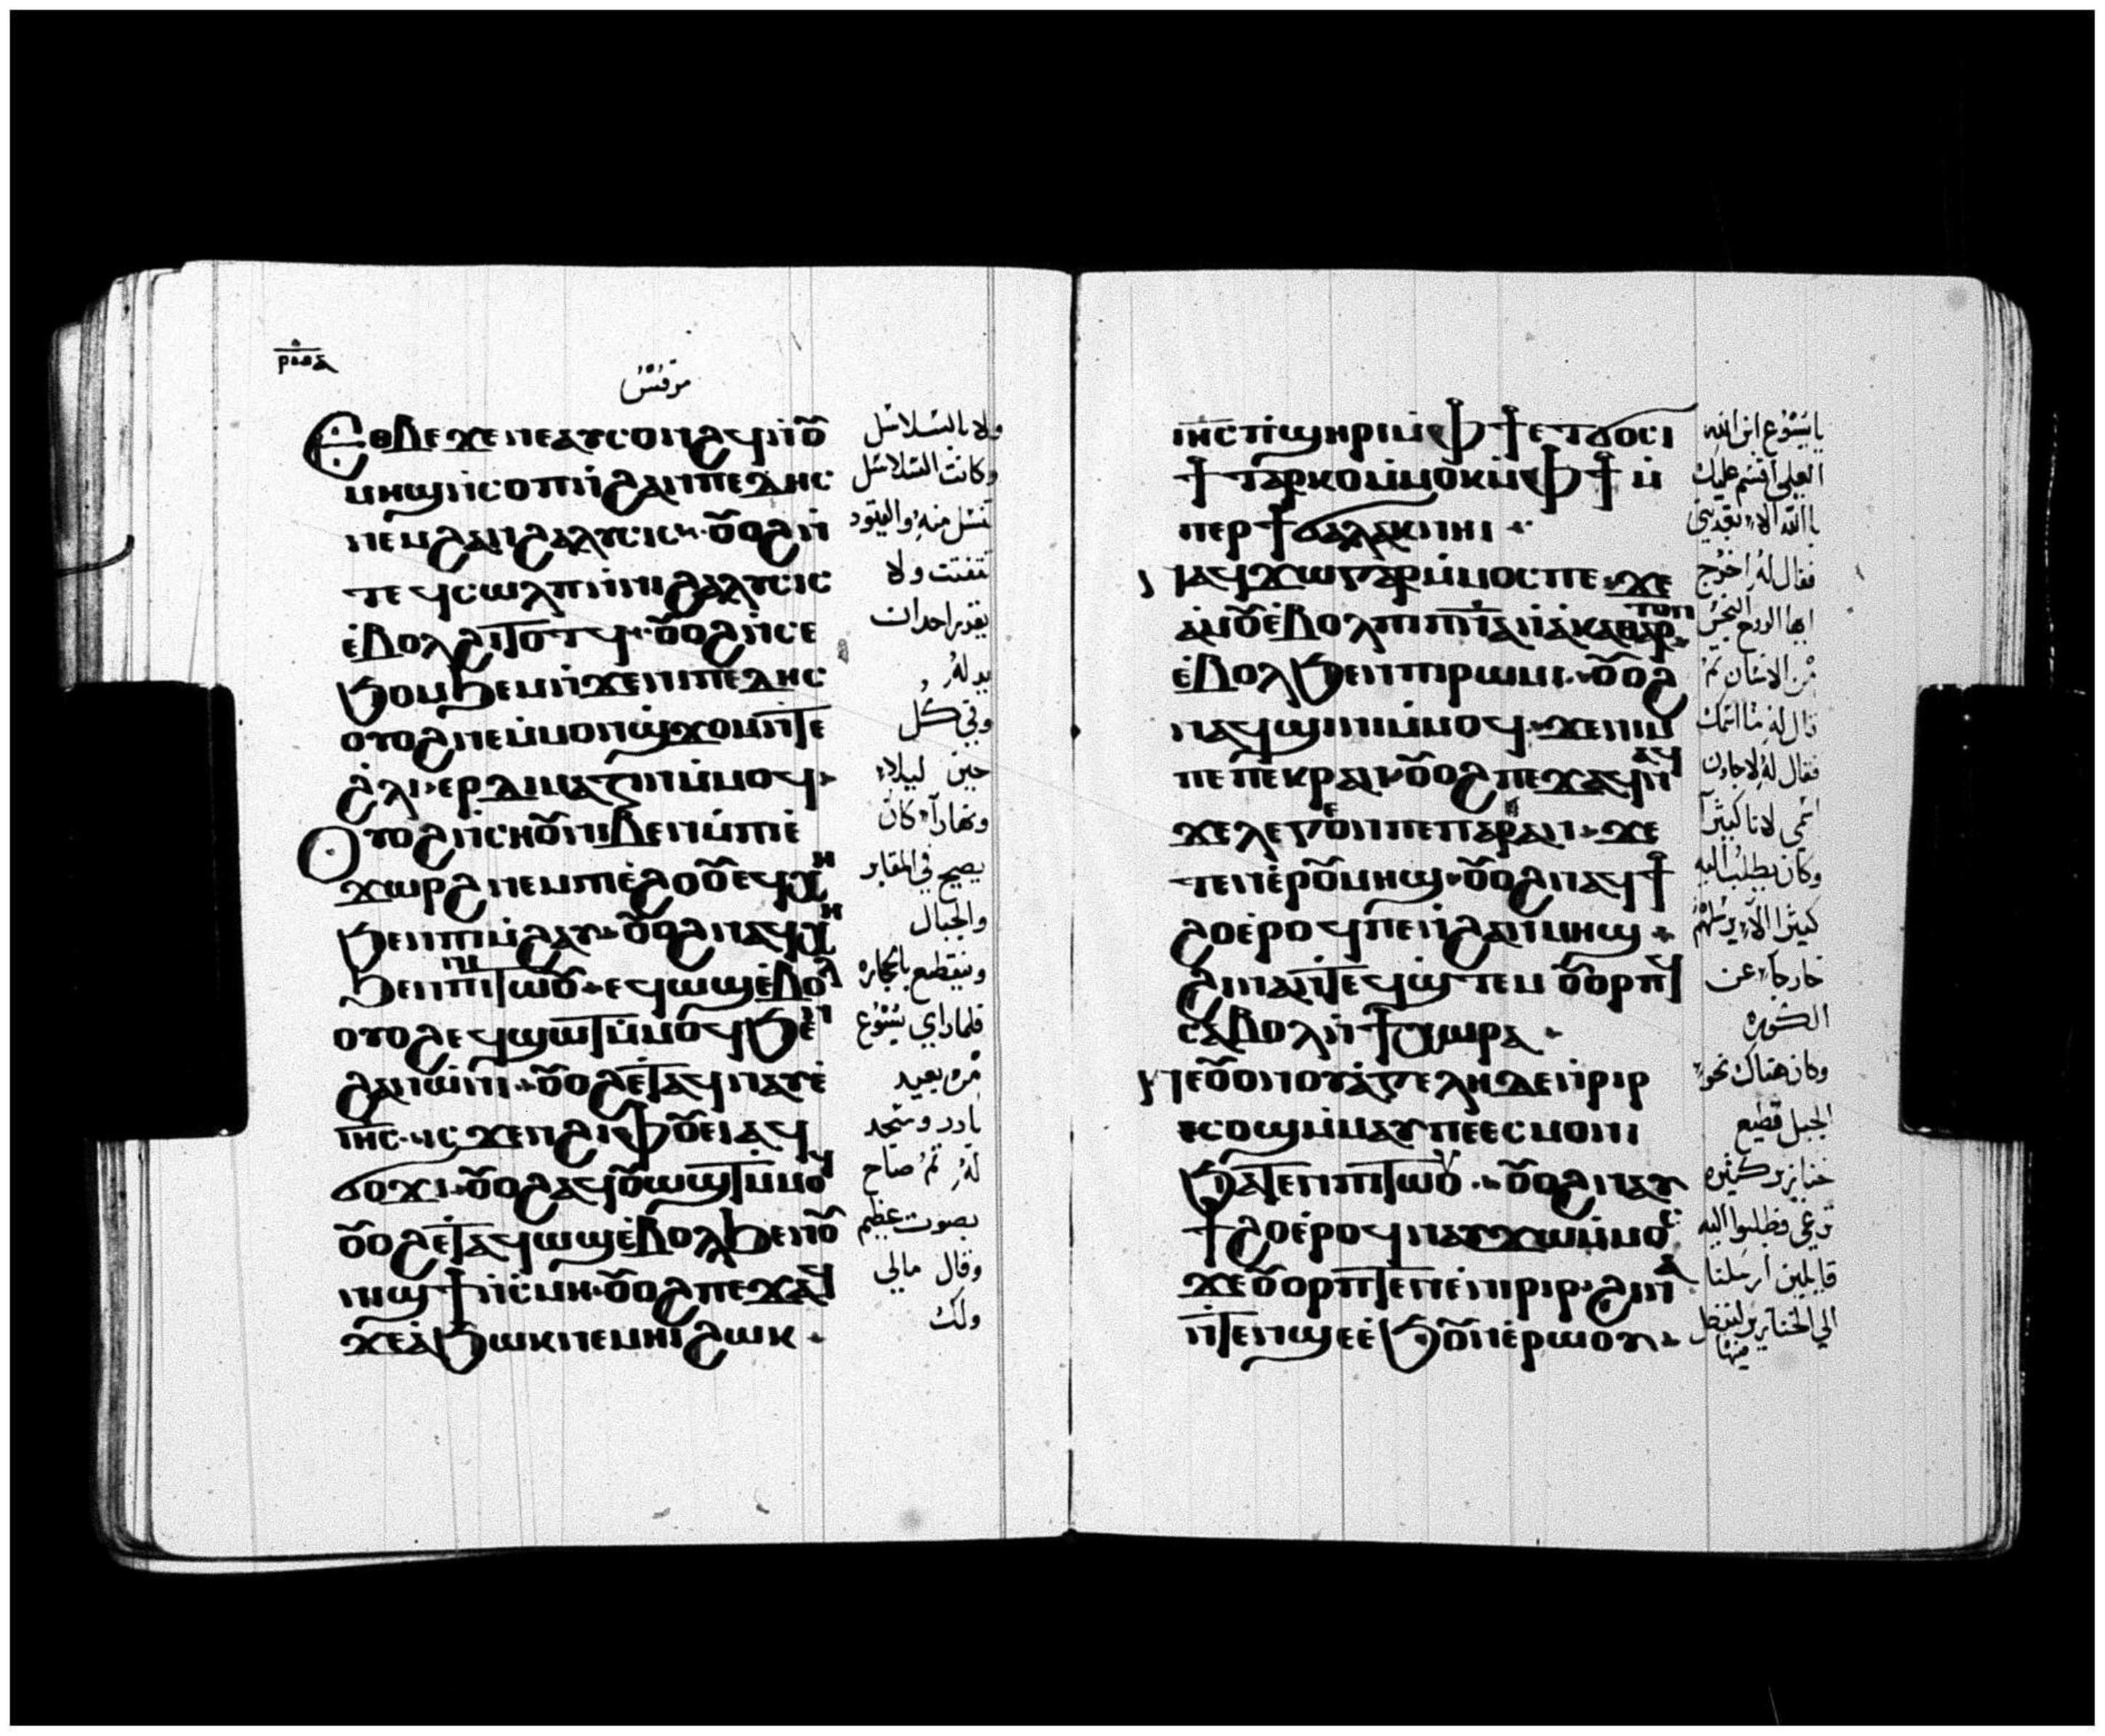 مرقس
Ⲉⲑⲃⲉ ϫⲉ ⲛⲉⲁⲩⲥⲟⲛϩϥ ⲛ̀ⲟⲩ
ⲙⲏϣ ⲛ̀ⲥⲟⲡ ⲛ̀ϩⲁⲛⲡⲉⲇⲏⲥ
ⲛⲉⲙ ϩⲁⲛϩⲁⲗⲩⲥⲓⲥ ⲟⲩⲟϩ ⲛ̀
ⲧⲉϥⲥⲱⲗⲡ ⲛ̀ⲛⲓϩⲁⲗⲩⲥⲓⲥ
ⲉ̀ⲃⲟⲗ ϩⲓⲧⲟⲧϥ ⲟⲩⲟϩ ⲛ̀ⲥⲉ
ϧⲟⲙϧⲉⲙ ⲛ̀ϫⲉ ⲛⲓⲡⲉⲇⲏⲥ
ⲟⲩⲟϩ ⲛⲉ ⲙ̀ⲙⲟⲛ ϣϫⲟⲙ ⲛ̀ⲧⲉ
ϩ̀ⲗⲓ ⲉⲣⲇⲁⲙⲁⲍⲓⲛ ⲙ̀ⲙⲟϥ
Ⲟⲩⲟϩ ⲛ̀ⲥⲏⲟⲩ ⲛⲓⲃⲉⲛ ⲙ̀ⲡⲓⲉ̀
ϫⲱⲣϩ ⲛⲉⲙ ⲡⲓⲉ̀ϩⲟⲟⲩ ⲉϥⲭⲏ
ϧⲉⲛ ⲛⲓⲙ̀ϩⲁⲩ ⲟⲩⲟϩ ⲛⲁϥⲭⲏ
ϧⲉⲛ ⲛⲓⲧⲱⲟⲩ ⲉϥⲱϣ ⲉ̀ⲃⲟⲗ
ⲟⲩⲟϩ ⲉϥϣⲱⲧ ⲙ̀ⲙⲟϥ ϧⲉⲛ
ϩⲁⲛⲱ̀ⲛⲓ ⲟⲩⲟϩ ⲉⲧⲁϥⲛⲁⲩ ⲉ̀
ⲓⲏⲥ ⲓⲥϫⲉⲛ ϩⲓⲫⲟⲩⲉⲓ ⲁϥ
ϭⲟϫⲓ ⲟⲩⲟϩ ⲁϥⲟⲩⲱϣⲧ ⲙ̀ⲙⲟϥ
ⲟⲩⲟϩ ⲉⲧⲁϥⲱϣ ⲉ̀ⲃⲟⲗ ϧⲉⲛ ⲟⲩ
ⲛⲓϣϯ ⲛ̀ⲥⲙⲏ ⲟⲩⲟϩ ⲡⲉϫⲁϥ
ϫⲉ ⲁ̀ϧⲱⲕ ⲛⲉⲙⲏⲓ ϩⲱⲕ
ولا بالسلاسل
وكانت السلاسل
تنسل منه والقيود
تتفتت ولا
يقدر احد ان
يد له
وفي كل
حين ليلا
ونهارا كان
يصيح في المقابر
والجبال
وينقطع بالحجاره
فلما راي يسوع
من بعيد
بادر وسجد
له ثم صاح
بصوت عظيم
وقال مالي
ولك
ⲓⲏⲥ ⲡ̀ϣⲏⲣⲓ ⲙ̀ⲫϯ ⲉⲧϭⲟⲥⲓ
ϯⲧⲁⲣⲕⲟ ⲙ̀ⲙⲟⲕ ⲙ̀ⲫϯ ⲙ̀
ⲡⲉⲣϯⲃⲁⲥⲁⲛⲟⲥ ⲛⲏⲓ
ⲛⲁϥϫⲱ ⲅⲁⲣ ⲙ̀ⲙⲟⲥ ⲡⲉ ϫⲉ
ⲁ̀ⲙⲟⲩ ⲉ̀ⲃⲟⲗ ⲡⲓⲡ̅ⲛ̅ⲁ̅ ⲛ̀ⲁ̀ⲕⲁⲑⲁⲣⲧⲟⲛ
ⲉ̀ⲃⲟⲗ ϧⲉⲛ ⲡⲓⲣⲱⲙⲓ ⲟⲩⲟϩ
ⲛⲁϥϣⲓⲛⲓ ⲙ̀ⲙⲟϥ ϫⲉ ⲛⲓⲙ
ⲡⲉ ⲡⲉⲕⲣⲁⲛ ⲟⲩⲟϩ ⲡⲉϫⲁϥ ⲛⲁϥ
ϫⲉ ⲗⲉⲅⲉⲱⲛ ⲡⲉ ⲡⲁⲣⲁⲛ ϫⲉ
ⲧⲉⲛⲉⲣⲟⲩⲙⲏϣ ⲟⲩⲟϩ ⲛⲁϥϯ
ϩⲟ ⲉ̀ⲣⲟϥ ⲡⲉ ⲛ̀ϩⲁⲛⲙⲏϣ
ϩⲓⲛⲁ ⲛ̀ⲧⲉϥϣ̀ⲧⲉⲙ ⲟⲩⲟⲣⲡϥ
ⲥⲁⲃⲟⲗ ⲛ̀ϯⲭⲱⲣⲁ
ⲛⲉ ⲟⲩⲟⲛ ⲟⲩⲁ̀ⲅⲉⲗⲏ ⲇⲉ ⲛ̀ⲣⲓⲣ
ⲉⲥⲟϣ ⲙ̀ⲙⲁⲩ ⲡⲉ ⲉⲥⲙⲟⲛⲓ
ϧⲁⲧⲉⲛ ⲡⲓⲧⲱⲟⲩ ⲟⲩⲟϩ ⲛⲁⲩ
ϯϩⲟ ⲉ̀ⲣⲟϥ ⲛⲁⲩϫⲱ ⲙ̀ⲙⲟⲥ
ϫⲉ ⲟⲩⲟⲣⲡⲧⲉⲛ ⲉ̀ⲛⲓⲣⲓⲣ ϩⲓⲛⲁ
ⲛ̀ⲧⲉⲛϣⲉ ⲉ̀ϧⲟⲩⲛ ⲉ̀ⲣⲱⲟⲩ
يا يسوع ابن الله
العلي اقسم عليك
بالله الا تعذبني
فقال له اخرج
ايها الروح النجس
من الانسان ثم
قال له ما اسمك
فقال له لاجاون
اسمي لانا كثيرا
وكان يطلب اليه
كثيرا الا يرسلهم
خارجا عن
الكوره
وكان هناك نحو
الجبل قطيع
خنازير كثيره
ترعى وطلبوا اليه
قايلين ارسلنا
الي الخنازير لندخل
فيها